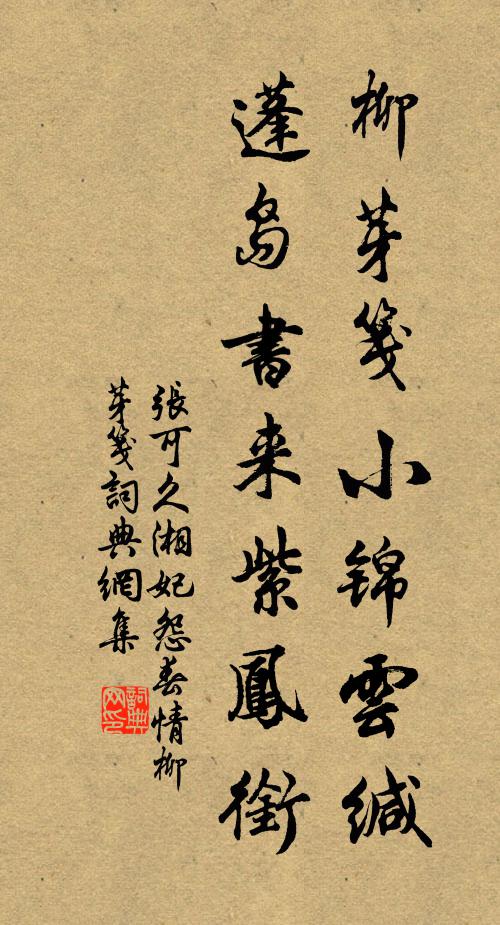 柳芽箋小錦雲緘
蓬島書来紫鳳銜
張可久湘妃怨春情柳
芽箋詞典網集
詞典网印